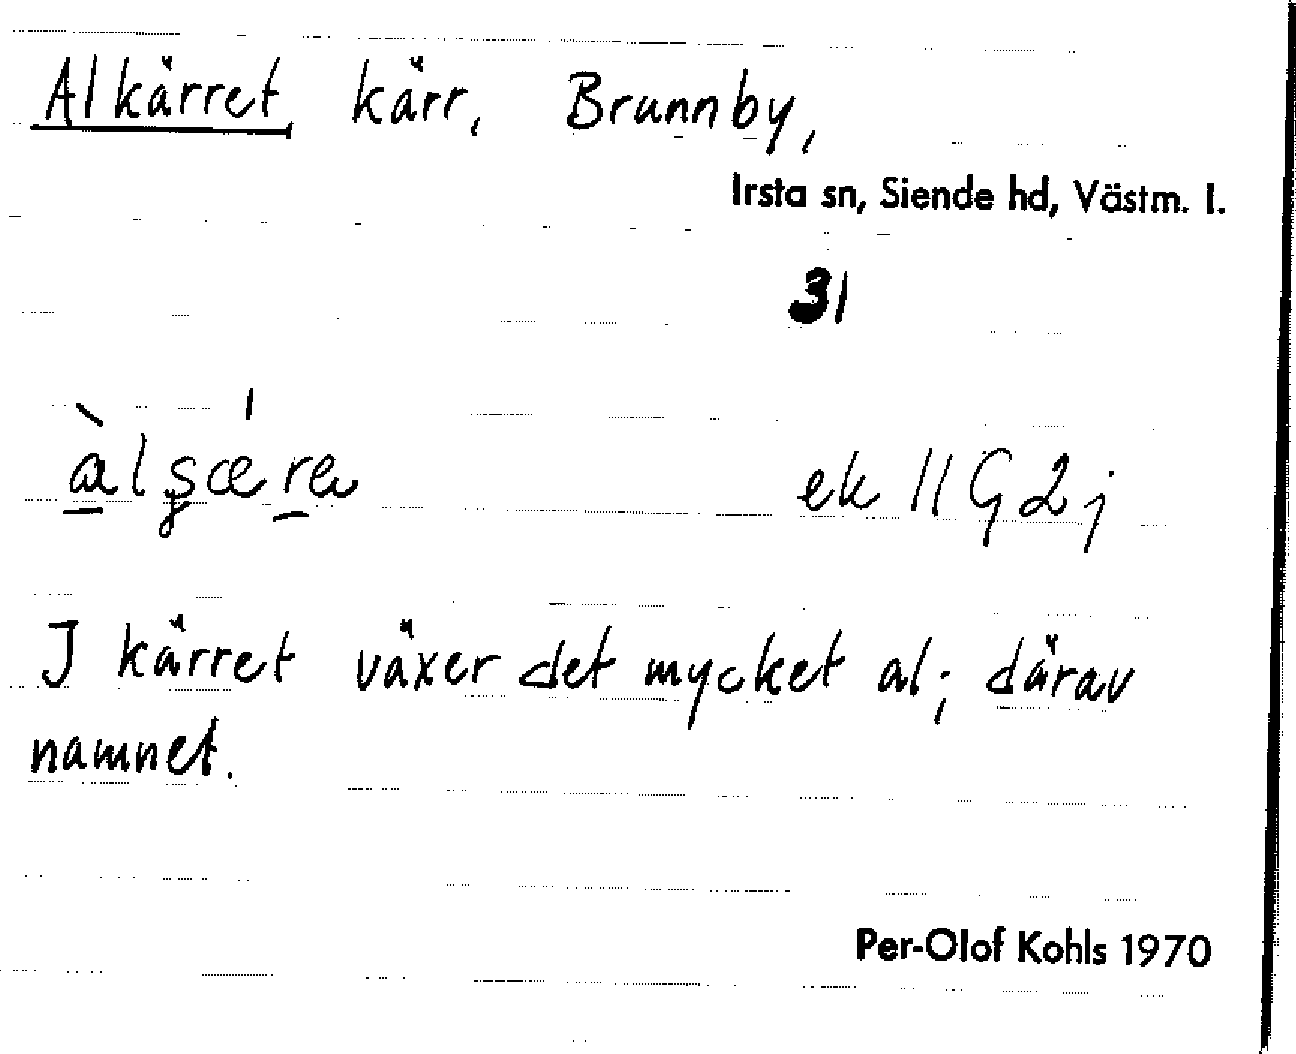 Alkärret kärr, Brunnby,
Irsta sn, Siende hd, Västm. l.
31
ek 11G2j
I kärret växer det mycket al; därav
namnet.
Per-Olof Kohls 1970